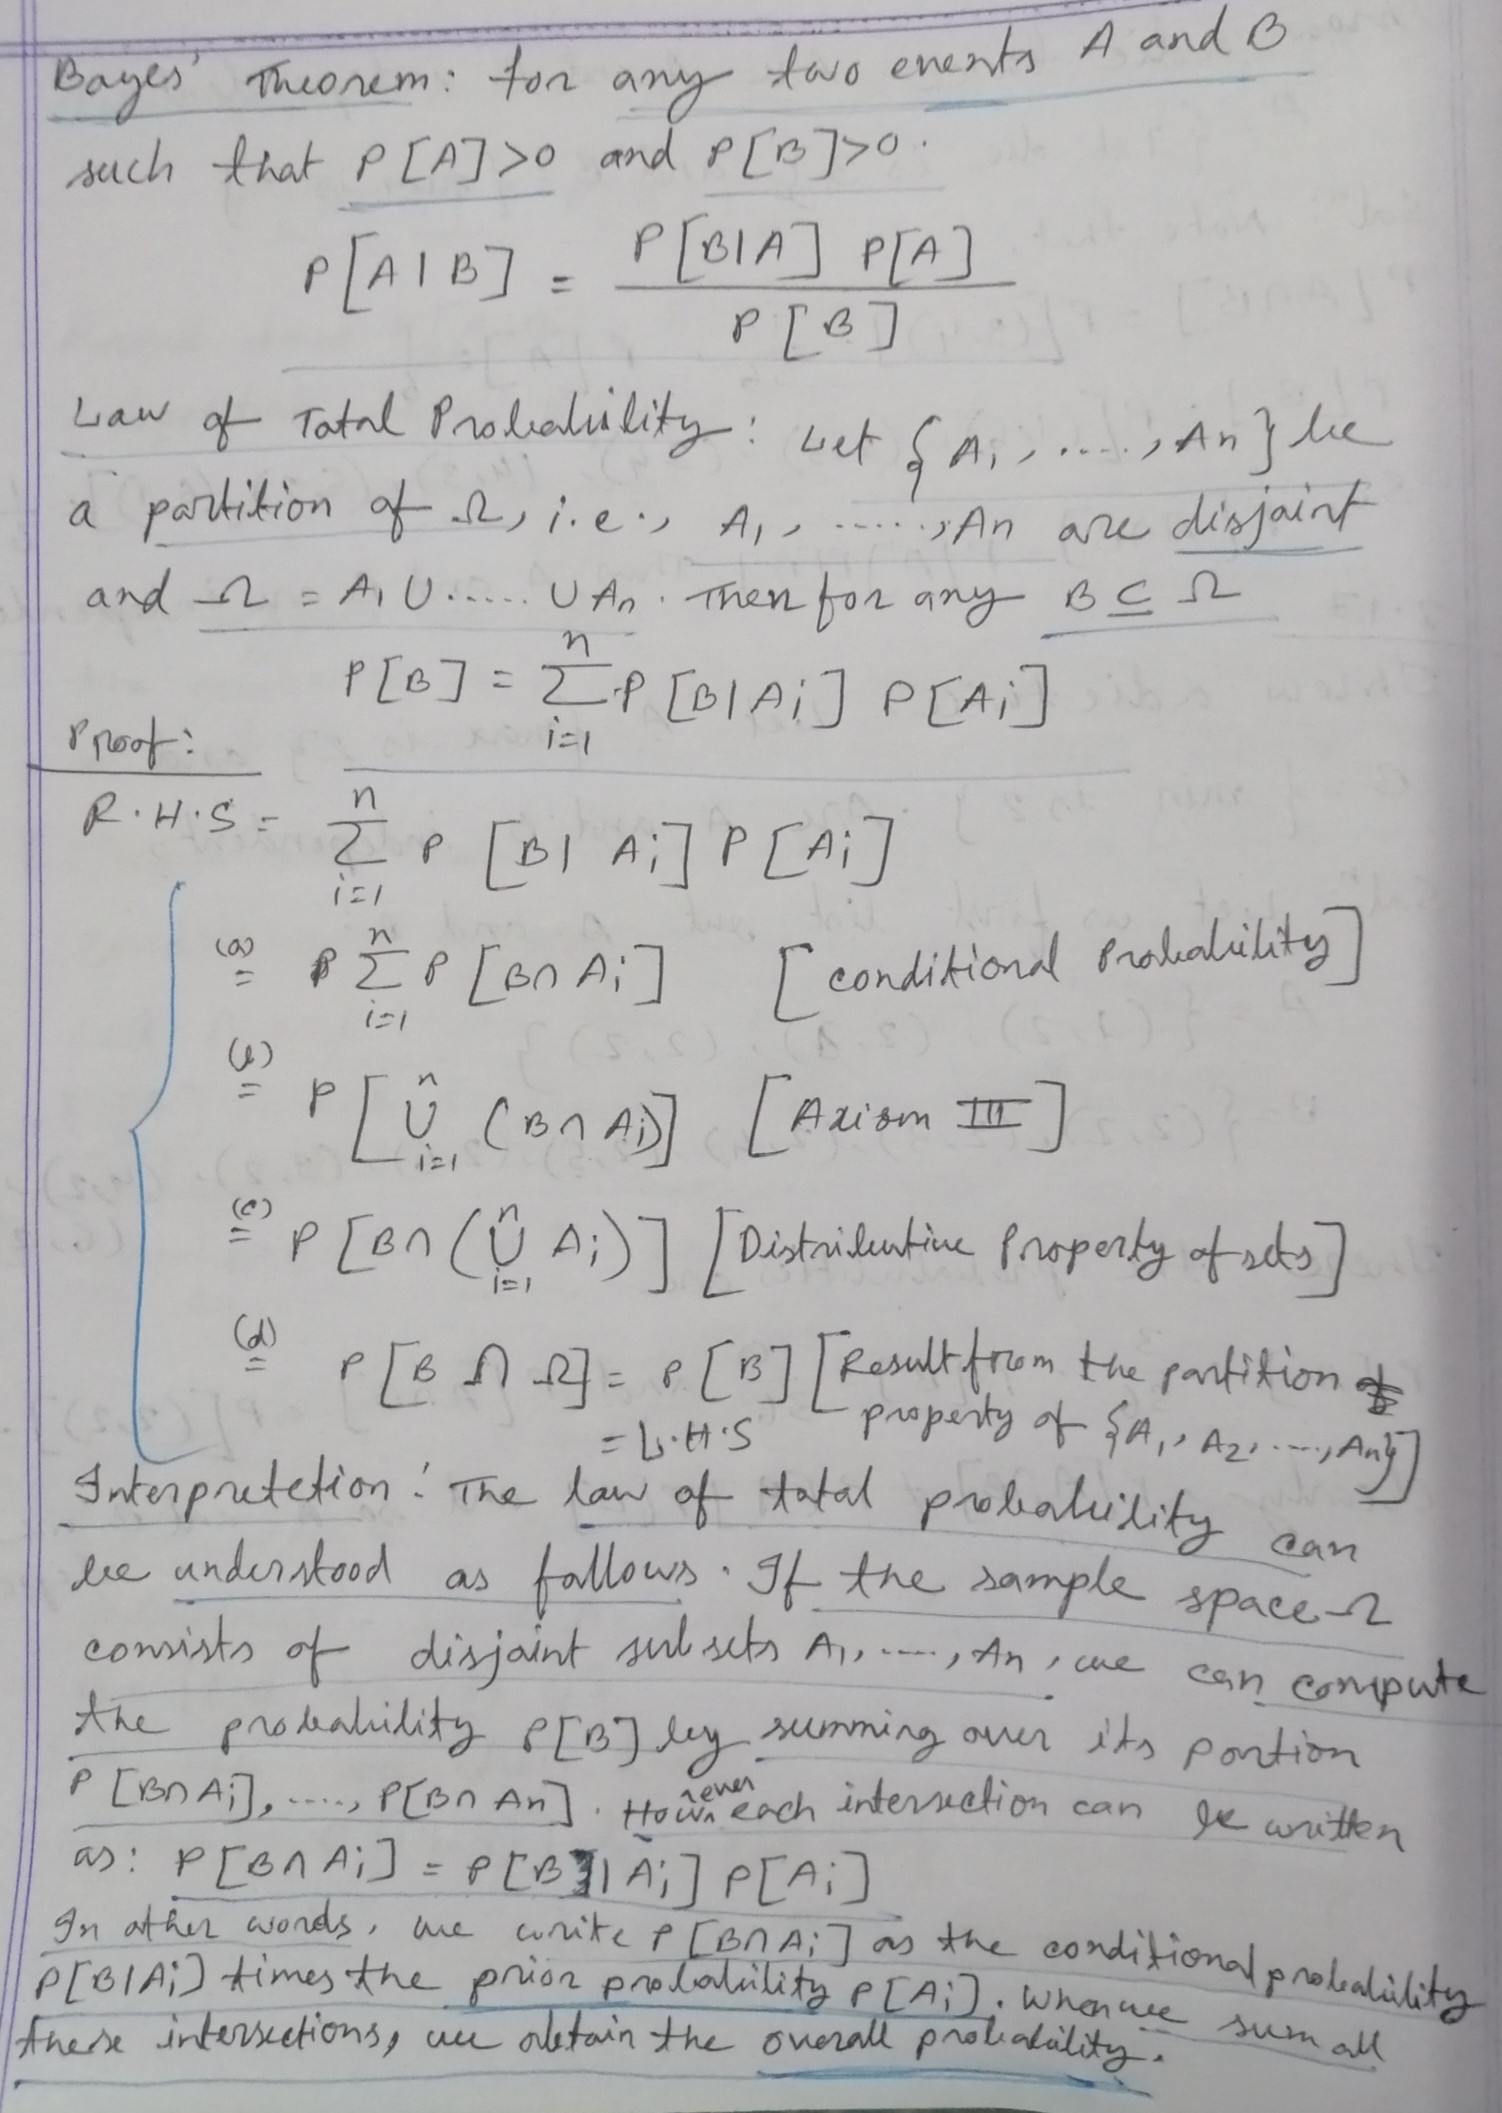 Bayes' Theorem: for any two events A and B
such that P[A]>0 and P[B]>0.
P[A|B] = P[B|A] P[A] / P[B]
Law of Total Probability: Let {A1, ....., An} be
a partition of Ω, i.e., A1, ....., An are disjoint
and Ω = A1 U ..... U An. Then for any B ⊆ Ω
P[B] = Σ_{i=1}^{n} P[B|Ai] P[Ai]
Proof:
R.H.S = Σ_{i=1}^{n} P [B| Ai] P[Ai]
(a) = Σ_{i=1}^{n} P [B∩Ai] [conditional Probability]
(b) = P[ ∪_{i=1}^{n} (B∩Ai)] [Axiom III]
(c) = P [B∩(∪_{i=1}^{n} Ai)] [Distributive Property of sets]
(d) = P[B ∩ Ω] = P[B] [Result from the partition
= L.H.S property of {A1, A2, ...., An}]
Interpretetion: The law of total probability can
be understood as follows. If the sample space Ω
consists of disjoint subsets A1, ...., An, we can compute
the probability P[B] by summing over its portion
P[B∩Ai], ...., P[B∩An]. However each intersection can be written
as: P[B∩Ai] = P[B|Ai] P[Ai]
In other words, we write P[B∩Ai] as the conditional probability
P[B|Ai] times the prior probability P[Ai]. When we sum all
these intersections, we obtain the overall probability.